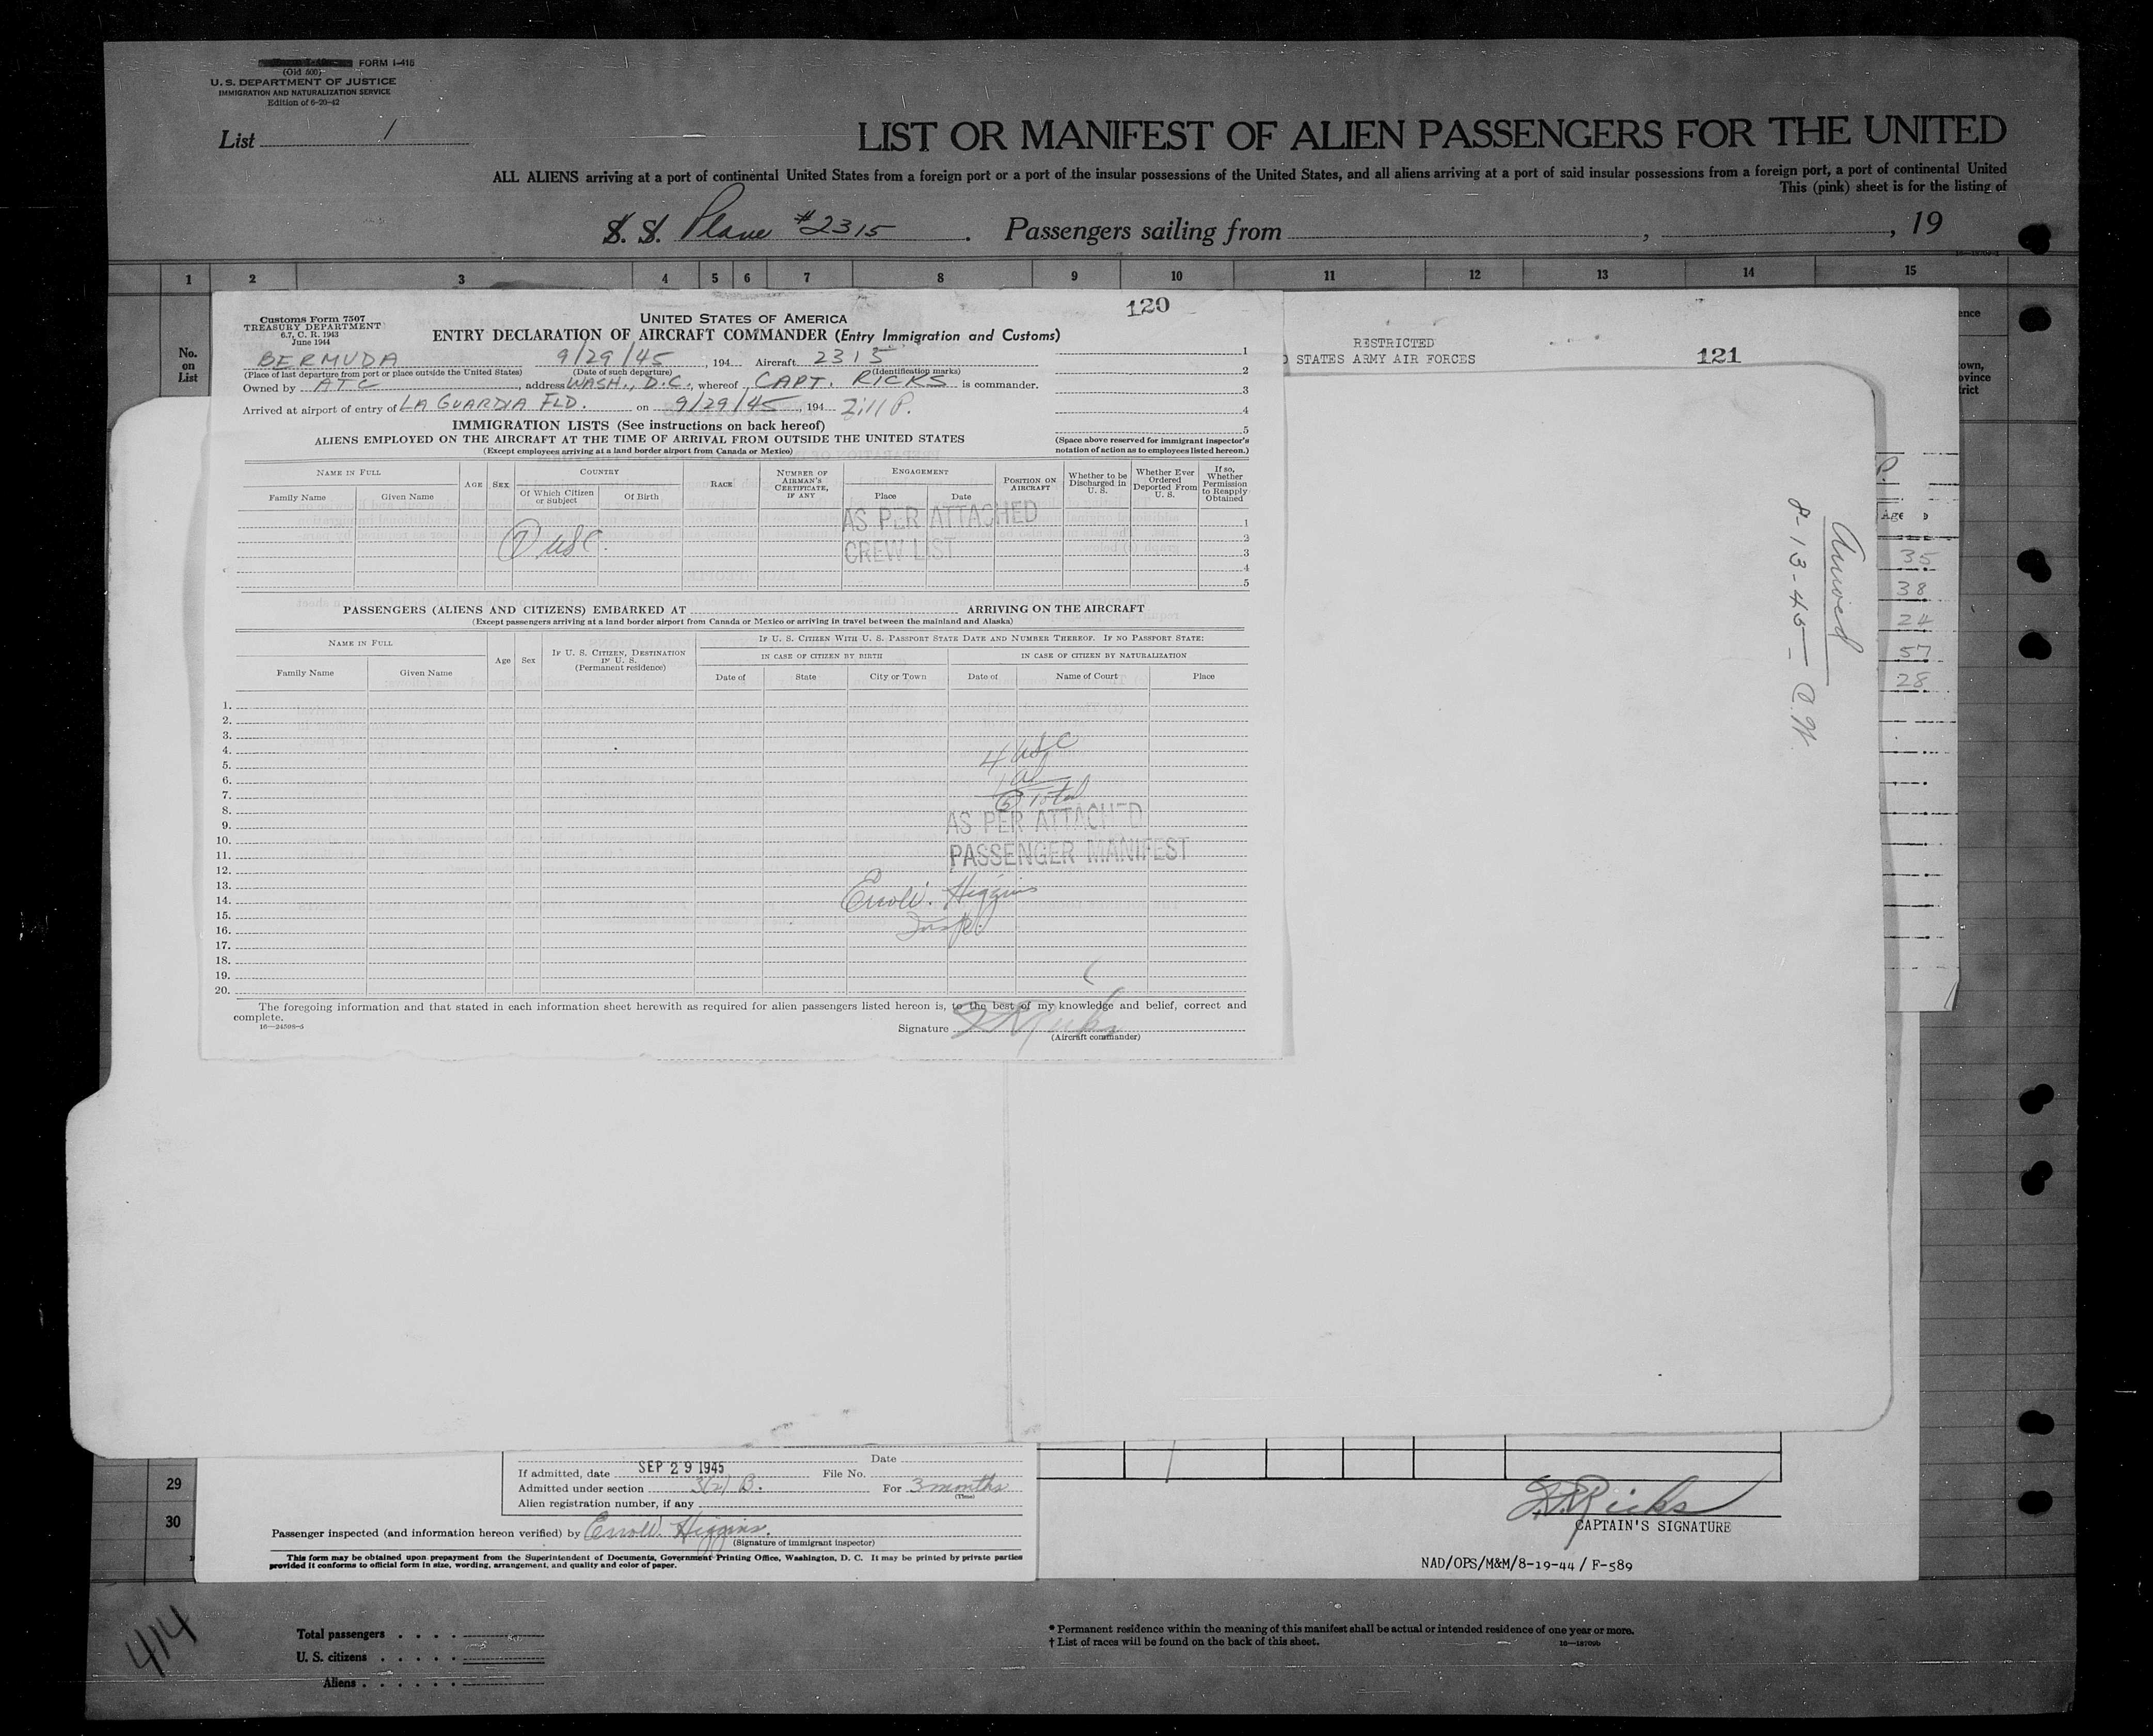 FORM I-418
(Old 500)
U. S. DEPARTMENT OF JUSTICE
IMMIGRATION AND NATURALIZATION SERVICE
Edition of 6-20-42
List 1
LIST OR MANIFEST OF ALIEN PASSENGERS FOR THE UNITED
ALL ALIENS arriving at a port of continental United States from a foreign port or a port of the insular possessions of the United States, and all aliens arriving at a port of said insular possessions from a foreign port, a port of continental United
This (pink) sheet is for the listing of
S. S. Plane #2315. Passengers sailing from , , 19
1 2 3 4 5 6 7 8 9 10 11 12 13 14 15
No.
on
List
120
Customs Form 7507
TREASURY DEPARTMENT
6.7, C. R. 1943
June 1944
UNITED STATES OF AMERICA
ENTRY DECLARATION OF AIRCRAFT COMMANDER (Entry Immigration and Customs)
BERMUDA 9/29/45, 194 Aircraft 2315
(Place of last departure from port or place outside the United States) (Date of such departure) (Identification marks)
Owned by ATC, address WASH., D.C., whereof CAPT. RICKS is commander.
Arrived at airport of entry of LA GUARDIA FLD. on 9/29/45, 194 2:11 P.
1
2
3
4
5
IMMIGRATION LISTS (See instructions on back hereof)
ALIENS EMPLOYED ON THE AIRCRAFT AT THE TIME OF ARRIVAL FROM OUTSIDE THE UNITED STATES
(Except employees arriving at a land border airport from Canada or Mexico)
(Space above reserved for immigrant inspector's
notation of action as to employees listed hereon.)
NAME IN FULL
Family Name Given Name
AGE SEX
COUNTRY
Of Which Citizen or Subject Of Birth
RACE
NUMBER OF AIRMAN'S CERTIFICATE, IF ANY
ENGAGEMENT
Place Date
POSITION ON AIRCRAFT
Whether to be Discharged in U. S.
Whether Ever Ordered Deported From U. S.
If so, Whether Permission to Reapply Obtained
AS PER ATTACHED
CREW LIST
USC.
1
2
3
4
5
PASSENGERS (ALIENS AND CITIZENS) EMBARKED AT ARRIVING ON THE AIRCRAFT
(Except passengers arriving at a land border airport from Canada or Mexico or arriving in travel between the mainland and Alaska)
NAME IN FULL
Family Name Given Name
Age Sex
IF U. S. CITIZEN, DESTINATION IN U. S.
(Permanent residence)
IF U. S. CITIZEN WITH U. S. PASSPORT STATE DATE AND NUMBER THEREOF. IF NO PASSPORT STATE:
IN CASE OF CITIZEN BY BIRTH IN CASE OF CITIZEN BY NATURALIZATION
Date of State City or Town Date of Name of Court Place
1.
2.
3.
4.
5.
6.
7.
8.
9.
10.
11.
12.
13.
14.
15.
16.
17.
18.
19.
20.
4 USC
1 al
5 Total
AS PER ATTACHED
PASSENGER MANIFEST
Errol W. Higgins
Insp.
The foregoing information and that stated in each information sheet herewith as required for alien passengers listed hereon is, to the best of my knowledge and belief, correct and
complete.
16—24598-5
Signature Ricks
(Aircraft commander)
RESTRICTED
STATES ARMY AIR FORCES
121
Arrived
8-13-45
Age
35
38
24
57
28
29
30
Date
If admitted, date SEP 29 1945 File No.
Admitted under section 3(2) B. For 3 months
(Time)
Alien registration number, if any
Passenger inspected (and information hereon verified) by Errol W. Higgins.
(Signature of immigrant inspector)
This form may be obtained upon prepayment from the Superintendent of Documents, Government Printing Office, Washington, D. C. It may be printed by private parties
provided it conforms to official form in size, wording, arrangement, and quality and color of paper.
Ricks
CAPTAIN'S SIGNATURE
NAD/OPS/M&M/8-19-44 / F-589
414
Total passengers
U. S. citizens
Aliens
* Permanent residence within the meaning of this manifest shall be actual or intended residence of one year or more.
† List of races will be found on the back of this sheet.
16—18709b